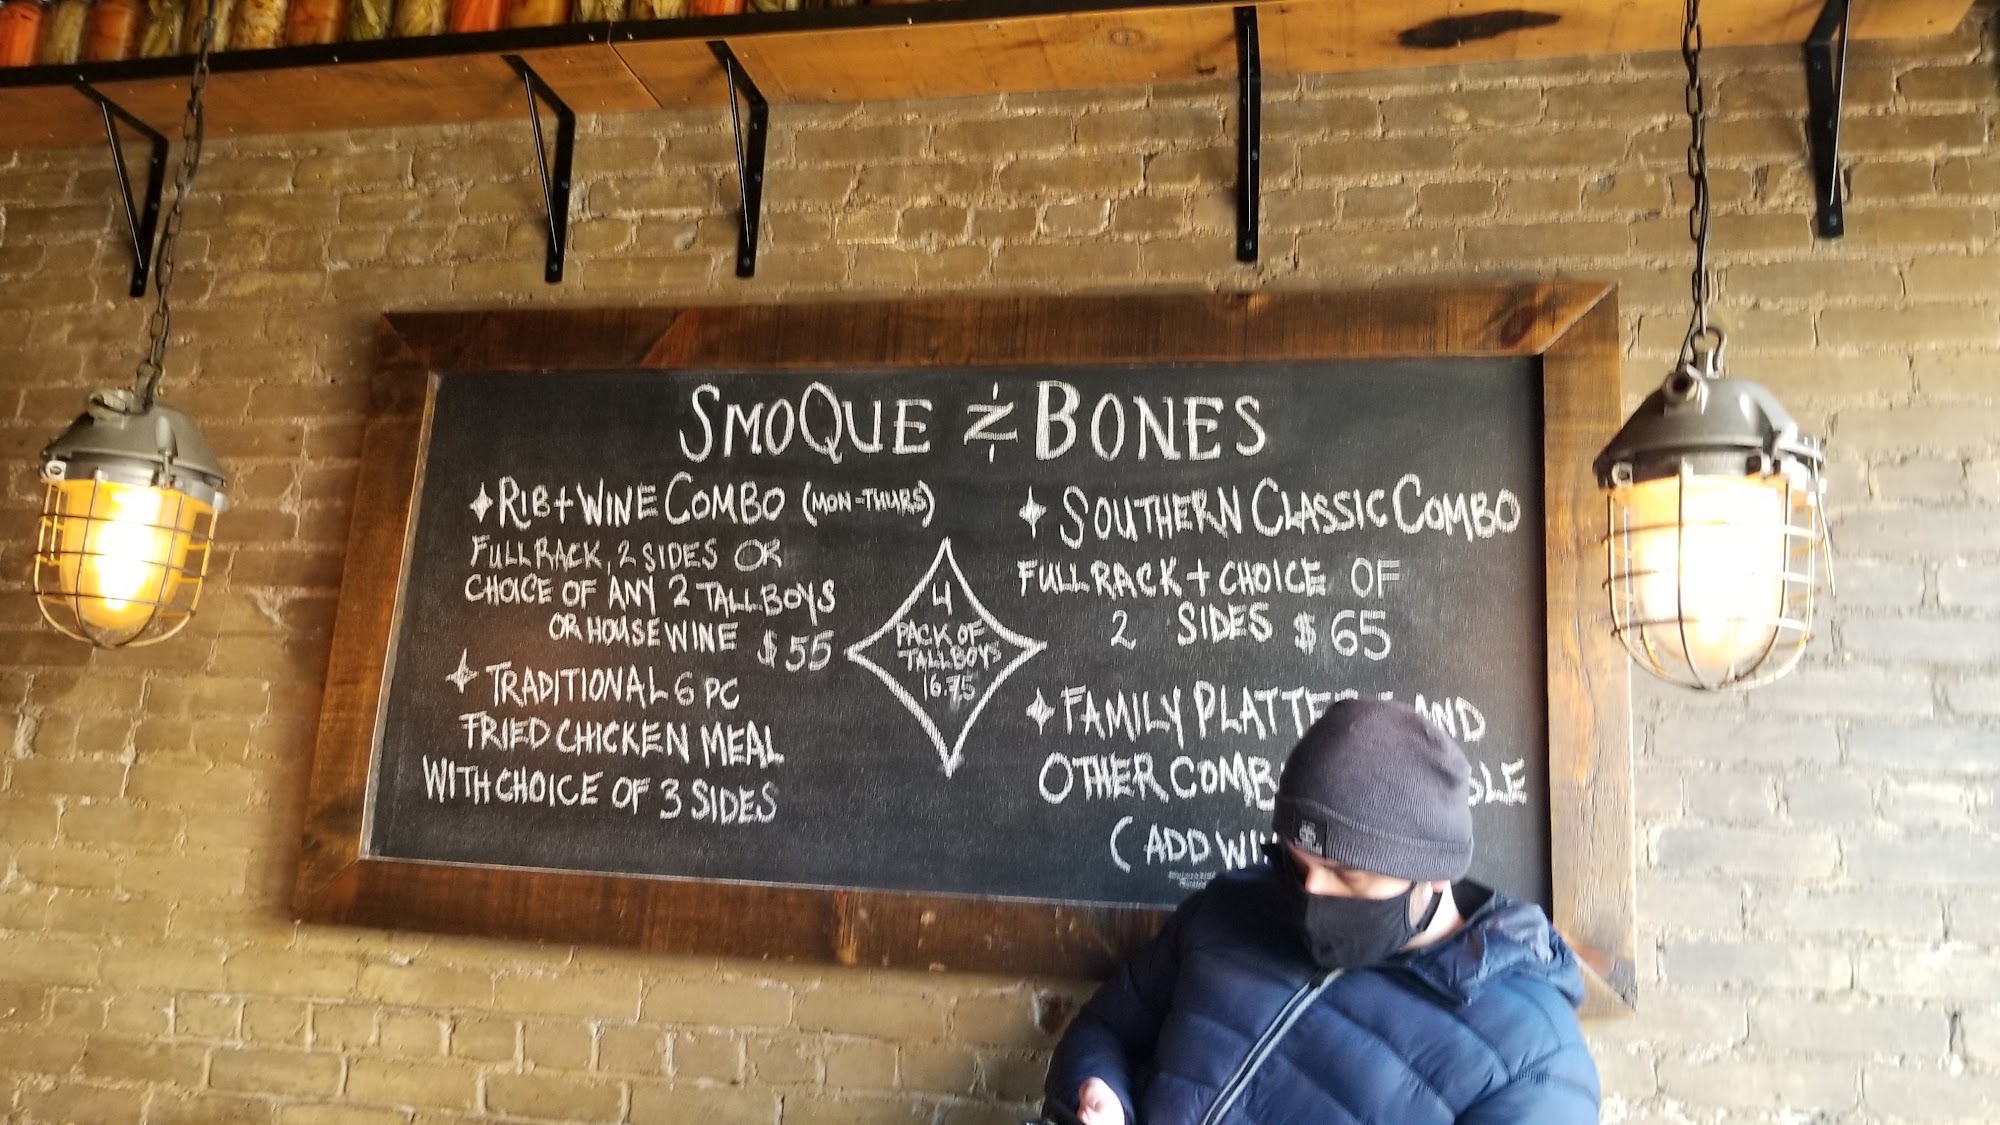 SMOQUE & BONES
RIB + WINE COMBO (MON-THURS)
FULL RACK, 2 SIDES OR
CHOICE OF ANY 2 TALLBOYS
OR HOUSE WINE $55
TRADITIONAL 6 PC
FRIED CHICKEN MEAL
WITH CHOICE OF 3 SIDES
4
PACK OF
TALLBOYS
16.75
SOUTHERN CLASSIC COMBO
FULL RACK + CHOICE OF
2 SIDES $65
FAMILY AND
OTHER
(ADD